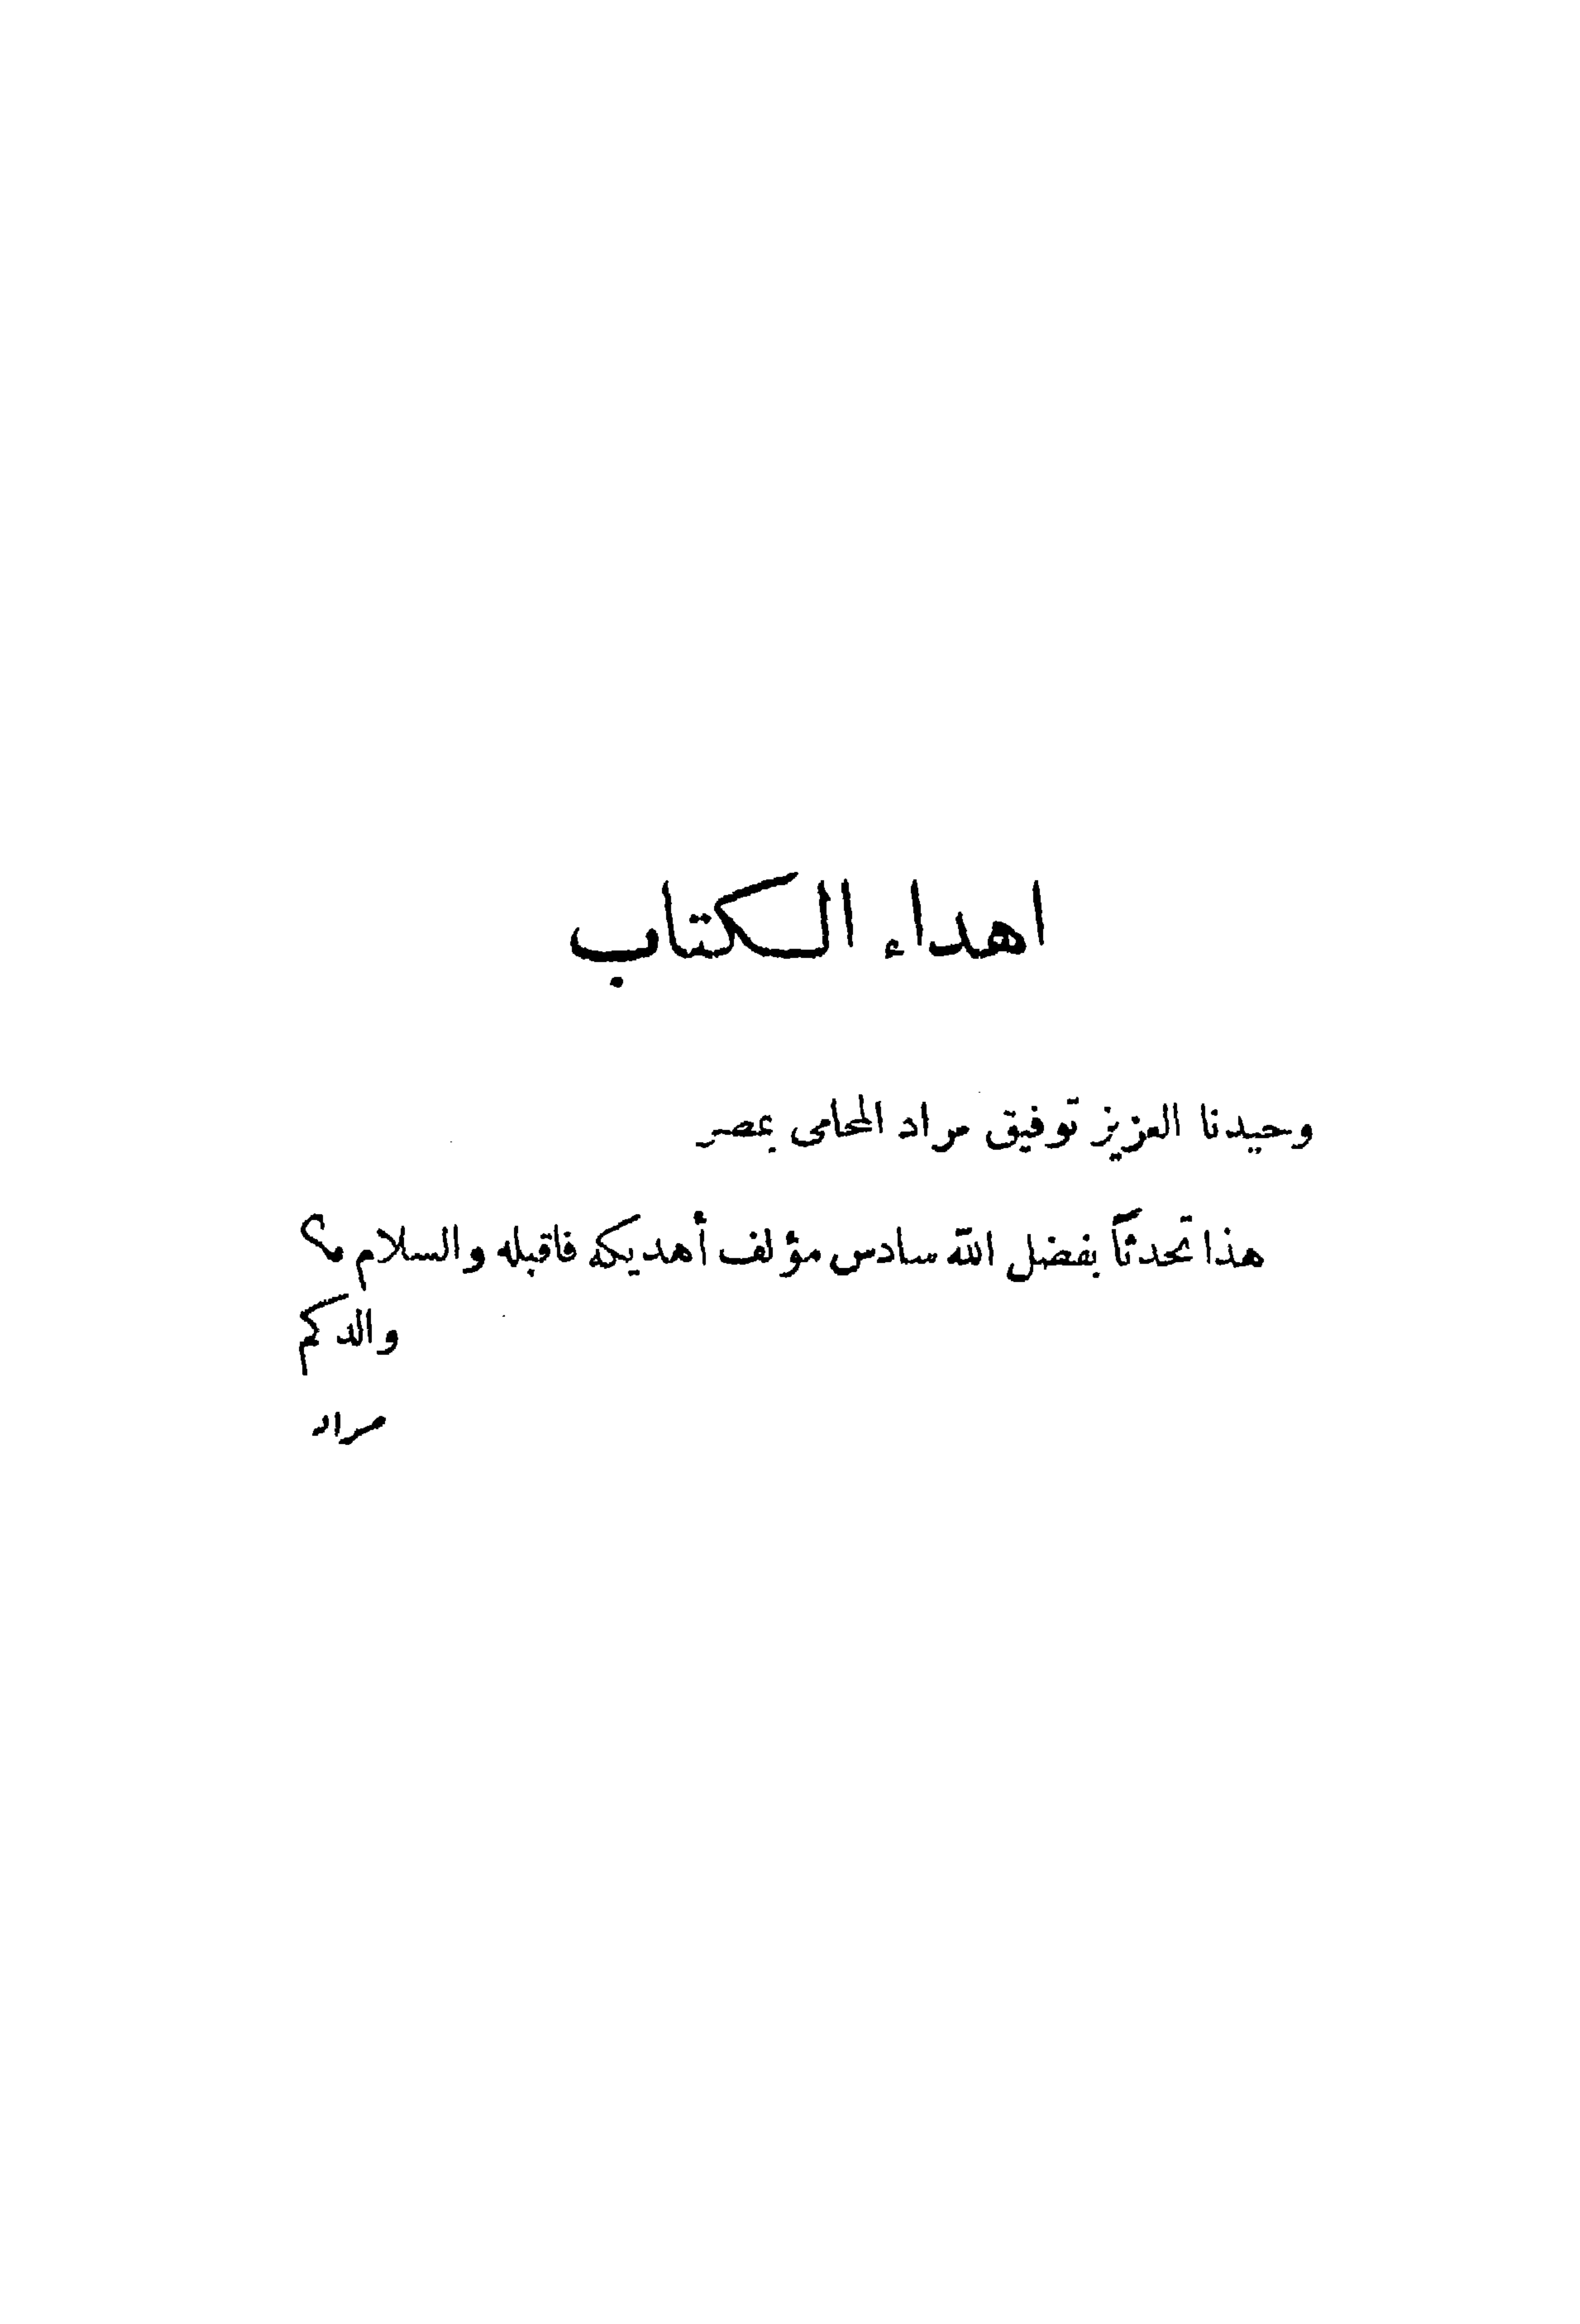 اهداء الكتاب
وحيدنا العزيز توفيق مراد المحامى بمصر
هذا تحدثاً بفضل الله سادس مؤلف أهديكه فاقبله والسلام م؟
والدكم
مراد